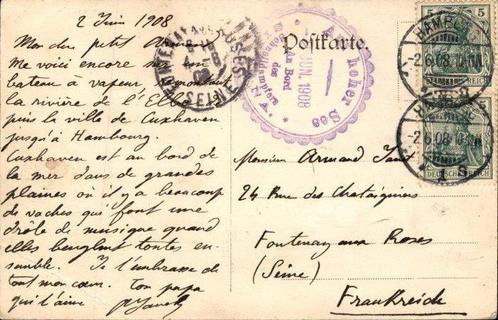 2 Juin 1908
Mon cher petit Armand
Me voici encore sur un
bateau à vapeur,
la rivière de l'Elbe
puis la ville de Cuxhaven
jusqu'à Hambourg.
Cuxhaven est au bord de
la mer dans de grandes
plaines où il y a beaucoup
de vaches qui font une
drôle de musique quand
elles beuglent toutes en-
semble. Je t'embrasse de
tout mon cœur. ton papa
qui t'aime
Postkarte.
FONTENAY AUX ROSES
SEINE
Auf hoher See
JUN. 1908
An Bord
des
Schnelldampfers
HAMBURG
-2.6.08
1
5
DEUTSCHES REICH
HAMBURG
-2.6.08
1
5
DEUTSCHES REICH
Monsieur Armand
24 Rue des Chataigniers
Fontenay aux Roses
(Seine)
Frankreich